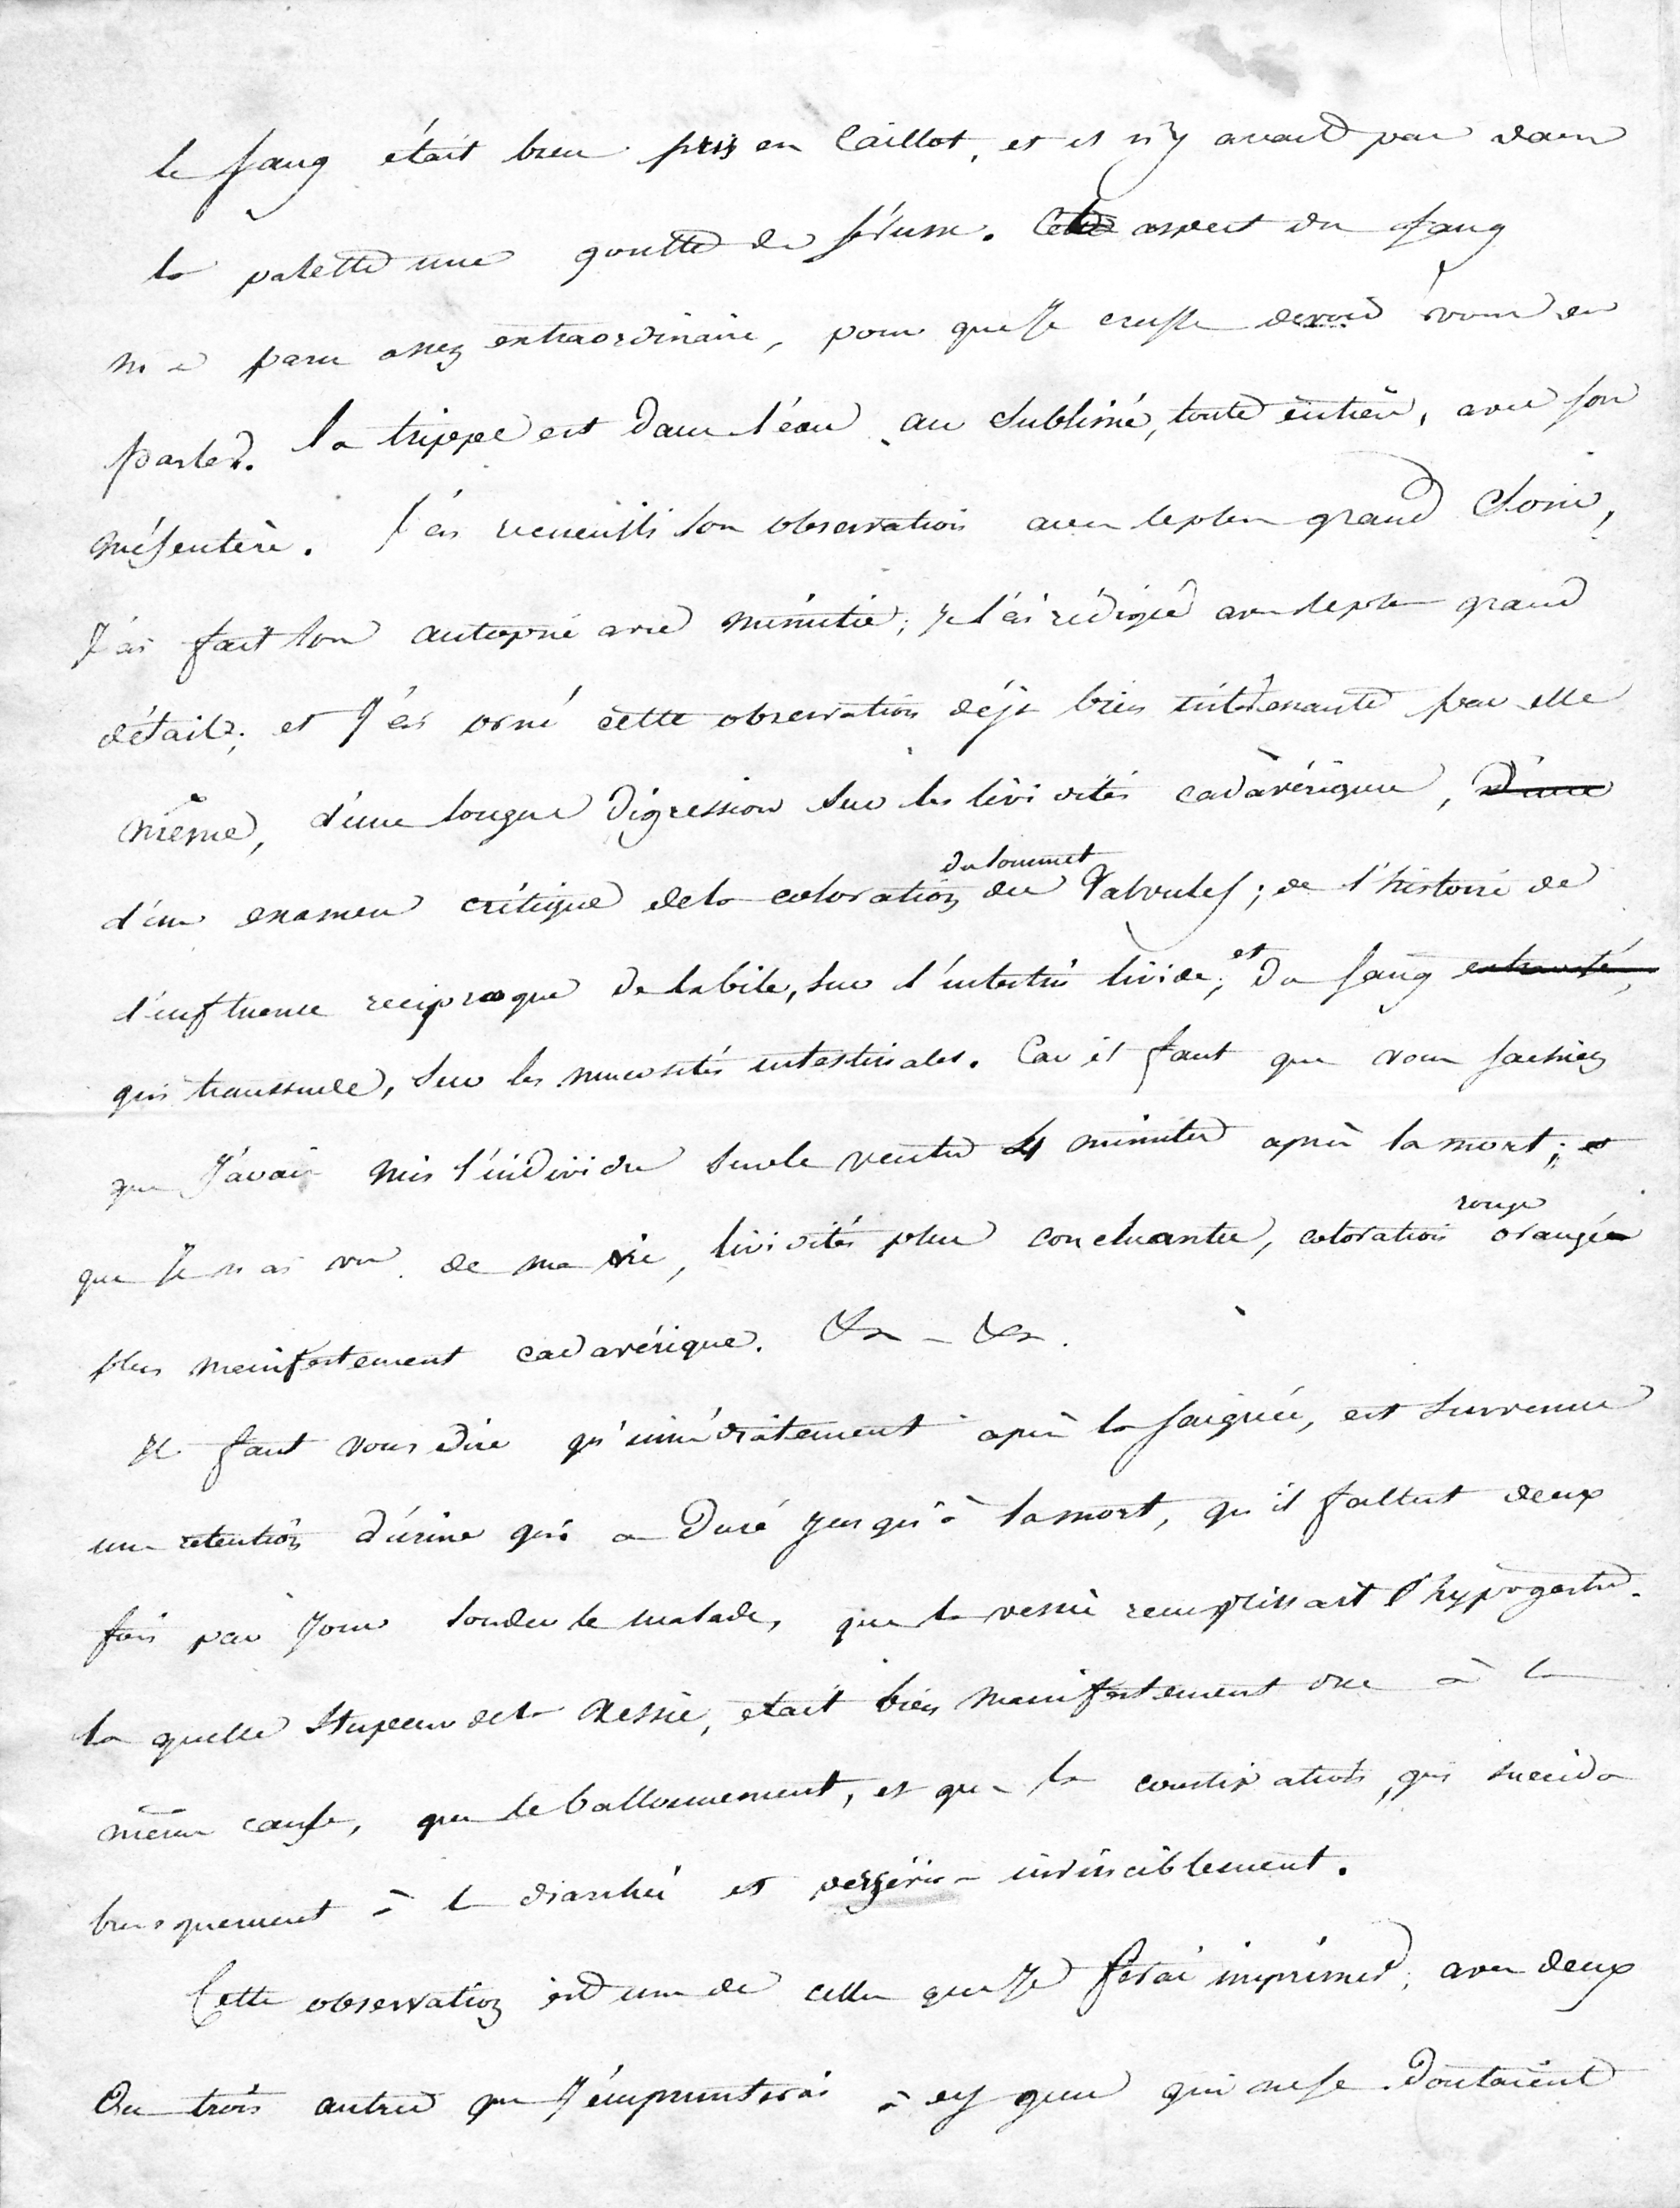 le sang était bien pris en caillot, et il n'y avait pas dans
la palette une goutte de sérum. Cet aspect du sang
m'a paru assez extraordinaire, pour que je crusse devoir vous en
parler. la trippe est dans l'eau au sublimé, toute entière, avec son
mésentère. J'ai recueilli son observation avec le plus grand soin,
J'ai fait son autopsie avec minutie; je l'ai rédigée avec le plus grand
détail; et J'ai orné cette observation déjà bien intéressante par elle
même, d'une longue digression sur les lividités cadavériques, d'une
d'un examen critique de la coloration du sommet des valvules; de l'histoire de
l'influence reciproque de la bile, sur l'intestin livide; et du sang extravasé,
qui transsude, sur les mucosités intestinales. Car il faut que vous sachiez
que J'avais mis l'individu sur le ventre 4 minutes après la mort; et
que Je n'ai vu de ma vie, lividités plus concluantes, coloration rouge orangée
plus manifestement cadavérique. &c - &c.
Il faut vous dire qu'immédiatement après la saignée, est survenue
une retention d'urine qui a duré jusqu'à la mort, qu'il fallut deux
fois par jour sonder le malade, que la vessie remplissait l'hypogastre.
la quelle stupeur de la vessie, etait bien manifestement due à la
même cause, que le ballonnement, et que la constipation, qui succéda
brusquement à la diarrhée et persévéra invinciblement.
Cette observation est une de celles que Je ferai imprimer, avec deux
ou trois autres que J'emprunterai à ces gens qui ne se doutaient